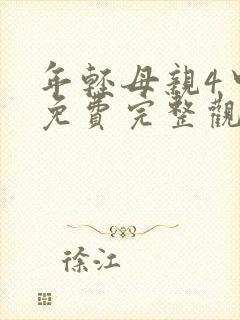 年輕母親4
免費完整觀
徐江